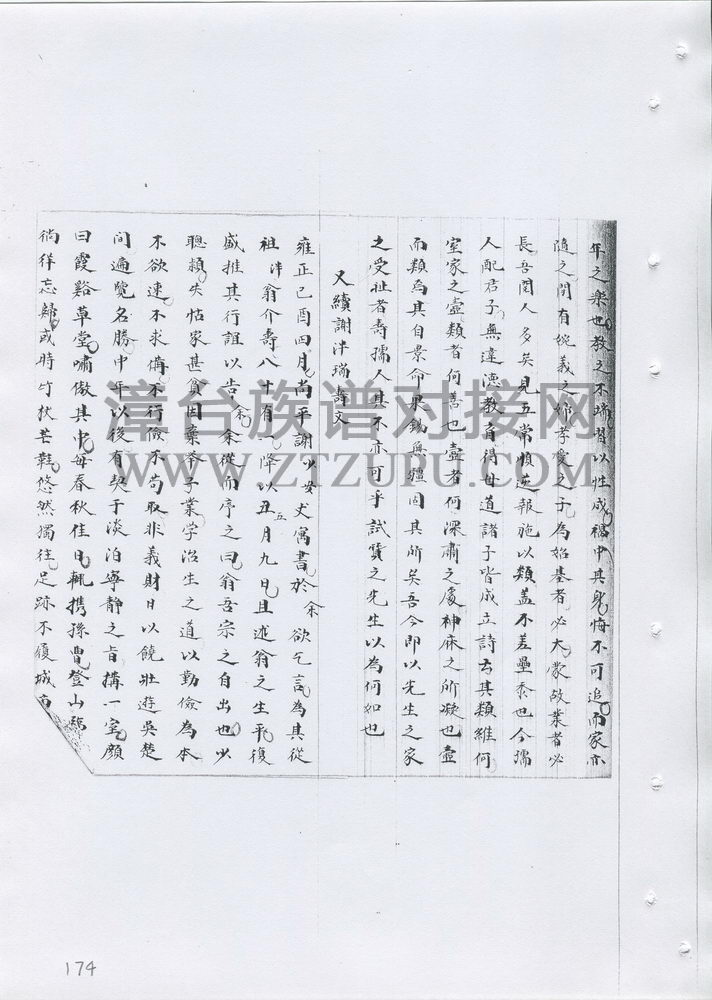 年之樂也教之不端習以性成禍中其身悔不可追而家亦
隨之閨有婉義之婦孝愛之子為始基者必大蒙故業者必
長吾閱人多矣見五常順逆報施以類蓋不差壘黍也今孺
人配君子無違德教育得母道諸子皆成立詩云其類維何
室家之壼類者何善也壼者何深肅之處神庥之所凝也壼
而類焉其自景命果錫無疆固其所矣吾今即以先生之家
之受祉者壽孺人其不亦可乎試質之先生以為何如也
又續謝泮瑞壽文
雍正己酉四月尚平謝以安丈寓書於余欲乞言為其從
祖泮翁介壽八十有一降以丑五月九日且述翁之生平復
盛推其行誼以告余余從而序之曰翁吾宗之自出也少
聰穎失怙家甚貧因棄舉子業学治生之道以勤儉為本
不欲速不求備不行儉不苟取非義財日以饒壯遊吳楚
間遍覽名勝中年以後有契于淡泊寧靜之旨搆一室顏
曰霞谿草堂嘯傲其中每春秋佳日輒携孫曹登山臨
徜徉忘歸或時竹杖芒鞋悠然獨往足跡不履城市
漳台族谱对接网
WWW.ZTZUPU.COM
174